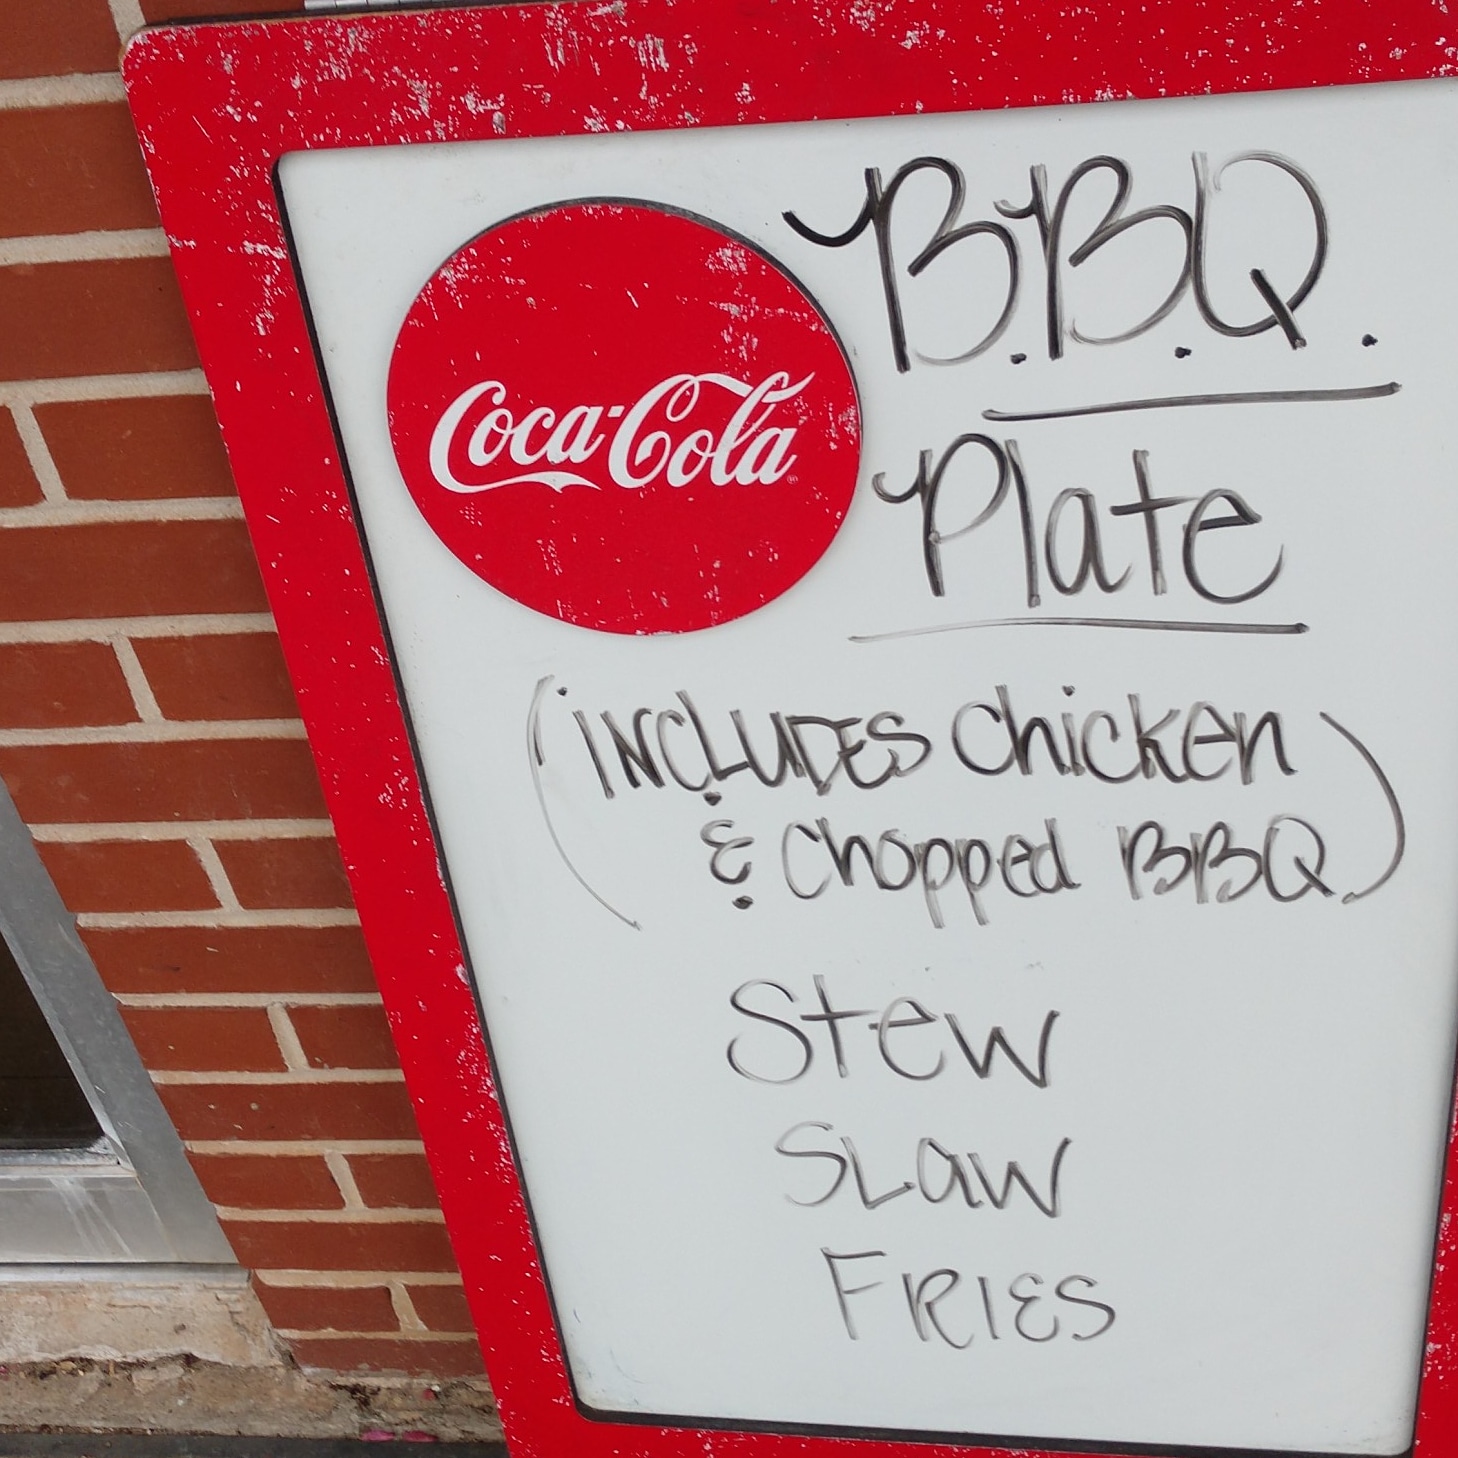 Coca-Cola
B.B.Q.
Plate
(INCLUDES Chicken
& Chopped BBQ)
Stew
SLaw
FRIES